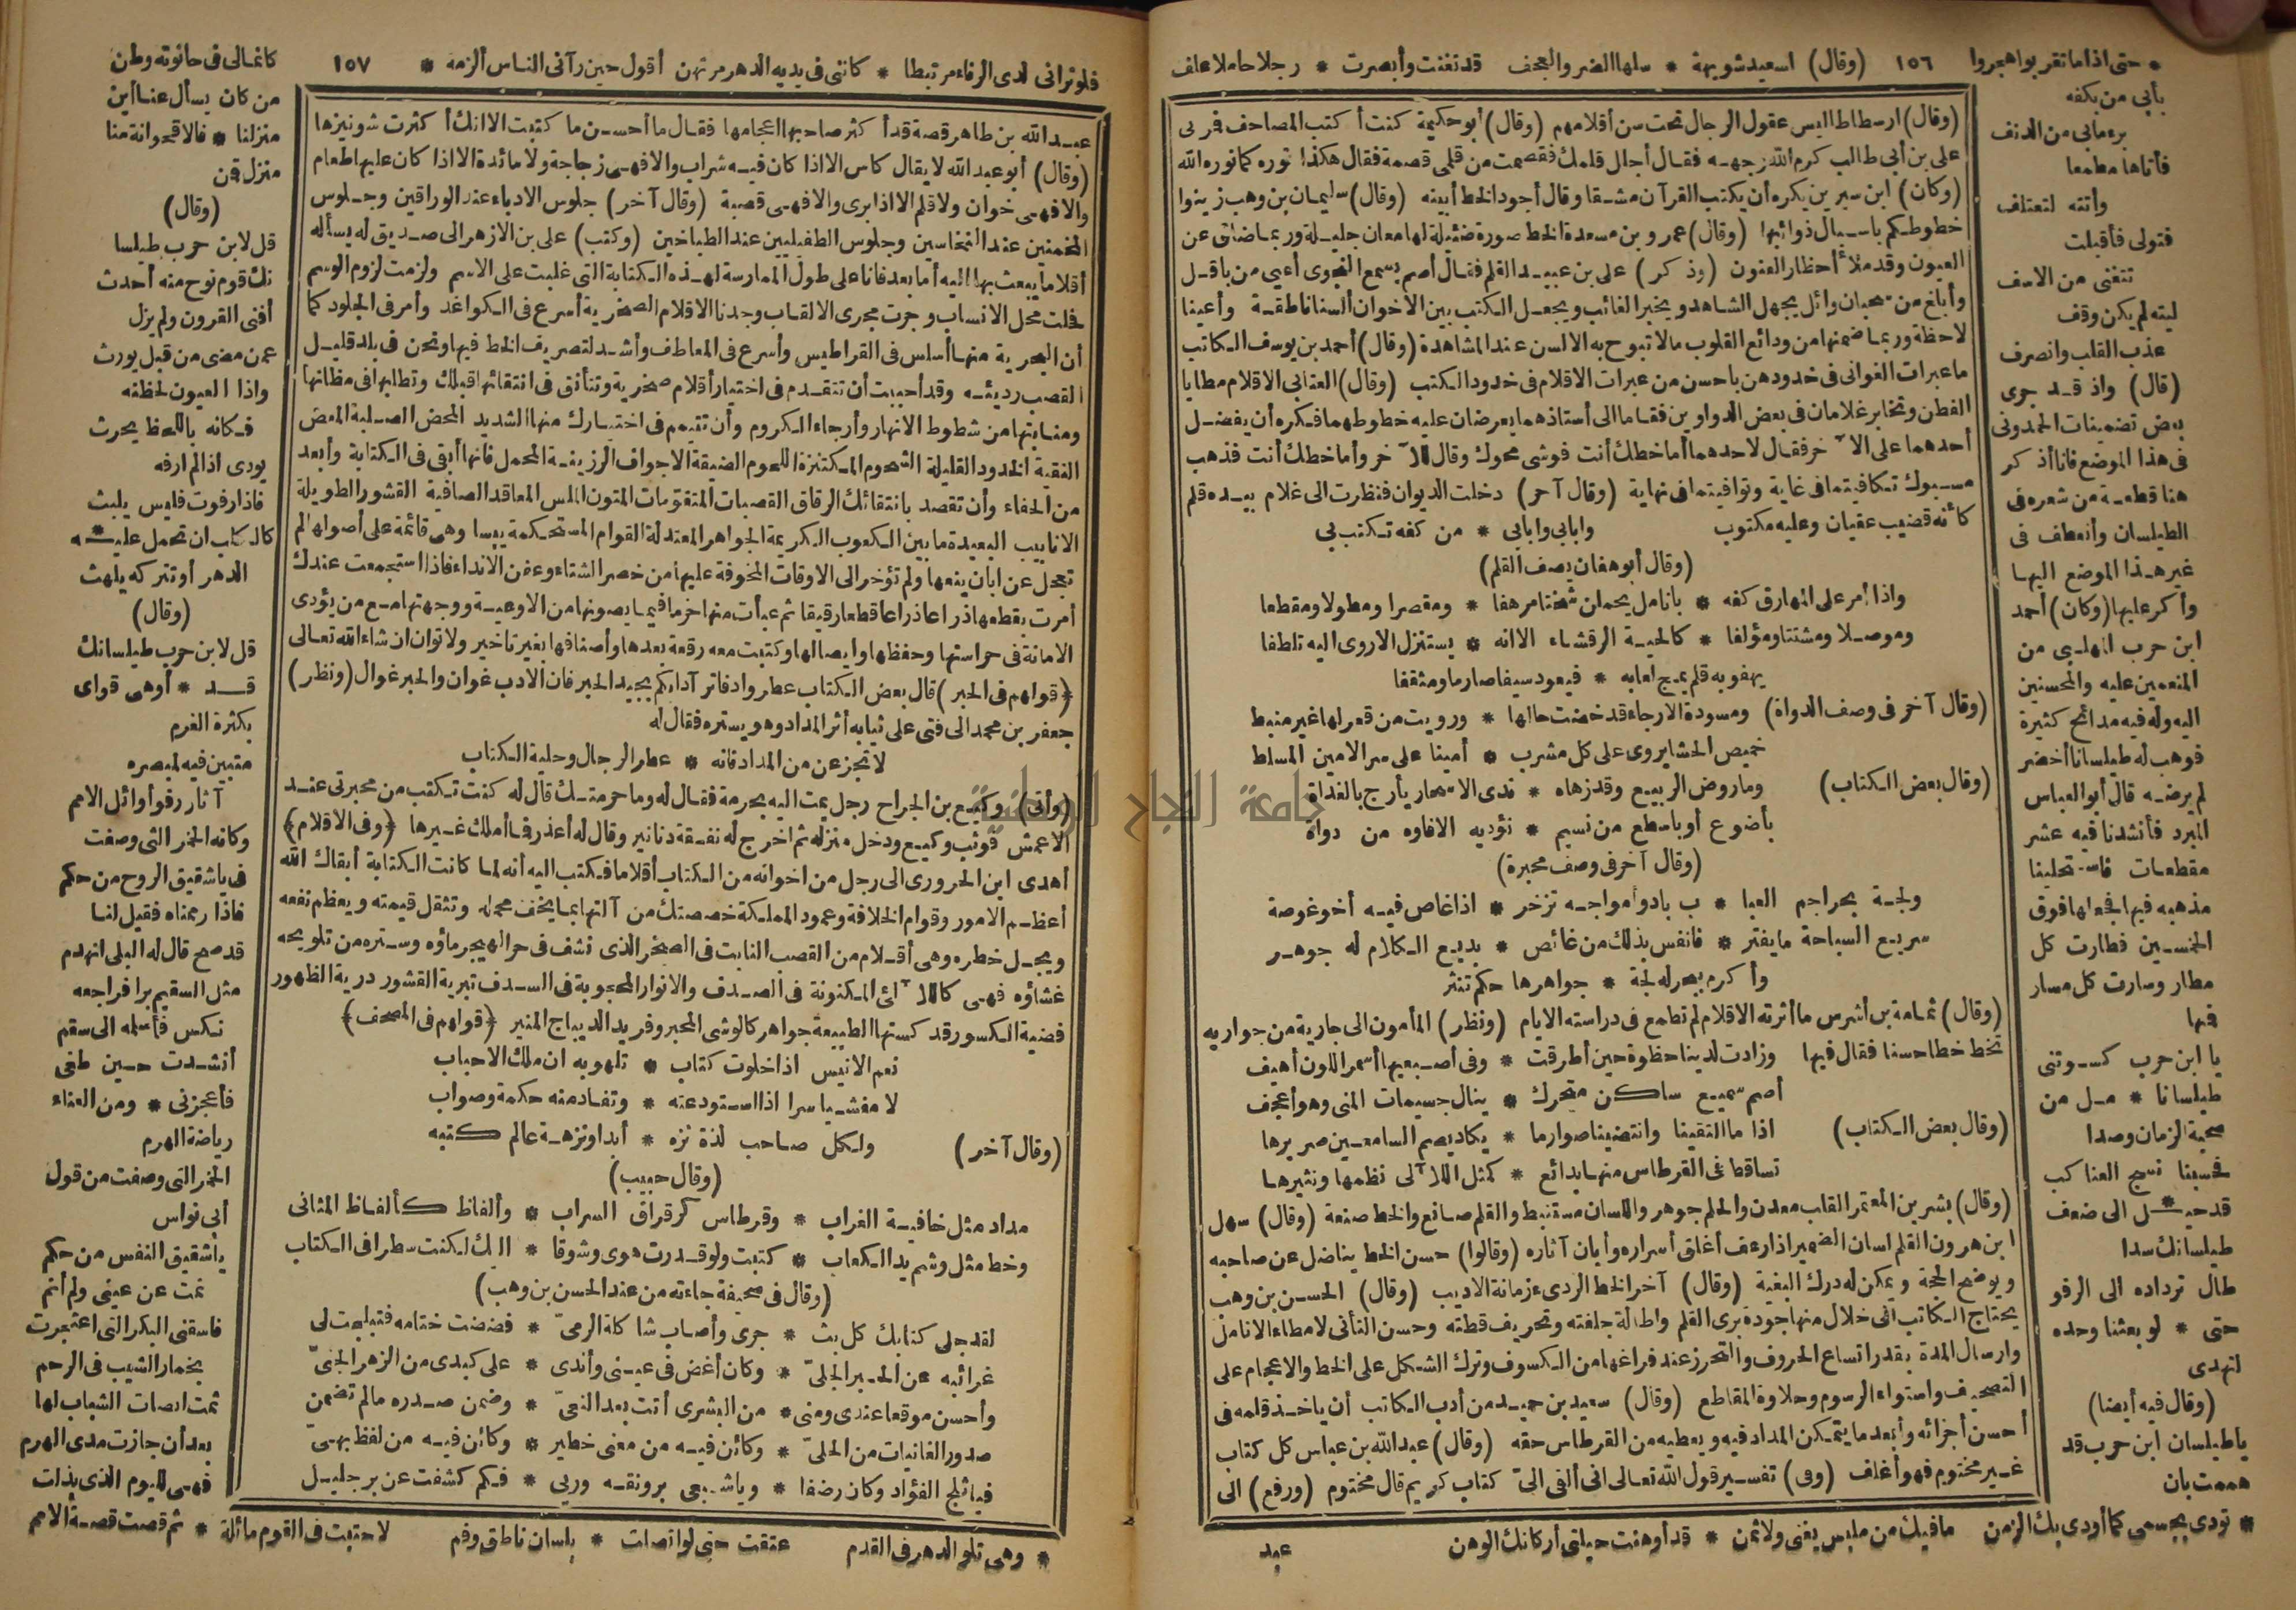 * حتى اذا ما تقربوا هجروا ١٥٦ (وقال) اسعيد شويهة * سلها الضر والعجف قد تغنت وأبصرت * رجلا حاملا علف
(وقال) ارسطاطاليس عقول الرجال تحت سن أقلامهم (وقال) أبو حكيمة كنت أكتب المصاحف فمر بى
على بن أبي طالب كرم الله وجهه فقال أجل قلمك فقصمت من قلمى قصمة فقال هكذا نوره كما نوره الله
(وكان) ابن سيرين يكره أن يكتب القرآن مشقا وقال أجود الخط أبينه (وقال) سليمان بن وهب زينوا
خطوطكم باسبال ذوائبها (وقال) عمرو بن مسعدة الخط صورة ضئيلة لها معان جليلة وربما ضاق عن
العيون وقد ملأ أحظار الفنون (وذكر) على بن عبيد القلم فقال أصم يسمع النجوى أعيى من باقل
وأبلغ من سحبان وائل يجهل الشاهد ويخبر الغائب ويجعل الكتب بين الاخوان ألسنا ناطقة وأعينا
لاحظة وربما ضمنها من ودائع القلوب مالا تبوح به الالسن عند المشاهدة (وقال) أحمد بن يوسف الكاتب
ما عبرات الغوانى فى خدودهن باحسن من عبرات الاقلام فى خدود الكتب (وقال) العتابى الاقلام مطايا
الفطن وتخاير غلامان فى بعض الدواوين فقاما الى أستاذهما يعرضان عليه خطوطهما فكره أن يفضل
أحدهما على الآخر فقال لاحدهما أما خطك أنت فوشى محوك وقال للآخر وأما خطك أنت فذهب
مسبوك تكافيتما فى غاية وتوافيتما فى نهاية (وقال آخر) دخلت الديوان فنظرت الى غلام بيده قلم
كأنه قضيب عقيان وعليه مكتوب وابابى وابابى * من كفه تكتب بي
(وقال أبو هفان يصف القلم)
واذا أمر على المهارق كفه * بانامل يحملن شختا مرهفا * ومقصرا ومطولا ومقطعا
وموصلا ومشتتا ومؤلفا * كالحية الرقشاء الا انه * يستنزل الاروى اليه تلطفا
يهفو به قلم يمج لعابه * فيعود سيفا صارما ومثقفا
(وقال آخر فى وصف الدواة) ومسودة الارجاء قد خضت حالها * ورويت من قعر لها غير منبط
خميص الحشا يروى على كل مشرب * أمينا على سر الامين المسلط
(وقال بعض الكتاب) وما روض الربيع وقد زهاه * ندى الاسحار يأرج بالغداة
بأضوع أو باسطع من نسيم * نؤديه الافاوه من دواة
(وقال آخر فى وصف محبرة)
ولجة بحر اجم العبا * ب بادو أمواجه تزخر * اذا غاص فيه أخو غوصة
سريع السباحة ما يفتر * فانفس بذلك من غائص * بديع الكلام له جوهر
وأكرم ببحر له لجة * جواهرها حكم تنثر
(وقال) ثمامة بن أشرس ما أثرته الاقلام لم تطمع فى دراسته الايام (ونظر) المأمون الى جارية من جواريه
تخط خطا حسنا فقال فيها وزادت لدينا حظوة حين أطرقت * وفى أصبعيها أسمر اللون أهيف
أصم سميع ساكن متحرك * ينال جسيمات المنى وهو أعجف
(وقال بعض الكتاب) اذا ما التقينا وانتضينا صوارما * يكاد يصم السامعين صريرها
تساقط فى القرطاس منها بدائع * كمثل اللآلى نظمها ونثيرها
(وقال) بشر بن المعتمر القلب معدن والحلم جوهر واللسان مستنبط والقلم صانع والخط صنعة (وقال) سهل
ابن هرون القلم لسان الضمير اذا رعف أغلق أسراره وأبان آثاره (وقالوا) حسن الخط يناضل عن صاحبه
ويوضح الحجة ويمكن له درك البغية (وقال) آخر الخط الردىء زمانة الاديب (وقال) الحسن بن وهب
يحتاج الكاتب الى خلال منها جودة برى القلم واطالة جلفته وتحريف قطته وحسن التأنى لامطاء الانامل
وارسال المدة بقدر اتساع الحروف والتحرز عند فراغها من الكسوف وترك الشكل على الخط والاعجام على
التصحيف واستواء الرسوم وحلاوة المقاطع (وقال) سعيد بن حميد من أدب الكاتب أن ياخذ قلمه فى
أحسن أجزائه وأبعد ما يتمكن المداد فيه ويعطيه من القرطاس حقه (وقال) عبد الله بن عباس كل كتاب
غير مختوم فهو أغلف (وفى) تفسير قول الله تعالى انى ألقى الىّ كتاب كريم قال مختوم (ورفع) الى
عبد
بأبي من بكفه
برء مابى من الدنف
فأتاها مطمعا
وأتته لتعتلف
فتولى فأقبلت
تتغنى من الاسف
ليته لم يكن وقف
عذب القلب وانصرف
(قال) واذ قد جرى
بعض تضمينات الحمدونى
فى هذا الموضع فانا أذكر
هنا قطعة من شعره فى
الطيلسان وأنعطف فى
غير هذا الموضع اليها
وأكر عليها (وكان) أحمد
ابن حرب المهلبى من
المنعمين عليه والمحسنين
اليه وله فيه مدائح كثيرة
فوهب له طيلسانا أخضر
لم يرضه قال أبو العباس
المبرد فأنشدنا فيه عشر
مقطعات فاستحلينا
مذهبه فيها فجعلها فوق
الخمسين فطارت كل
مطار وسارت كل مسار
فمنها
يا ابن حرب كسوتنى
طيلسانا * مل من
صحبة الزمان وصدا
فحسبنا نسج العناكب
قد حيل * الى ضعف
طيلسانك سدا
طال ترداده الى الرفو
حتى * لو بعثنا وحده
لتهدى
(وقال فيه أيضا)
ياطيلسان ابن حرب قد
هممت بان
* تودى بجسمى كما أودى بك الزمن مافيك من ملبس يغنى ولا ثمن * قد أوهنت حيلتى أركانك الوهن
فلو ترانى لدى الرفاء مرتبطا * كاننى فى يديه الدهر مرتهن أقول حين رآنى الناس ألزمه * ١٥٧ كانما لى فى حانوته وطن
عبد الله بن طاهر قصة قد أكثر صاحبها اعجامها فقال ما أحسن ما كتبت الا انك أكثرت شونيزها
(وقال) أبو عبد الله لا يقال كاس الا اذا كان فيه شراب والا فهى زجاجة ولا مائدة الا اذا كان عليها طعام
والا فهى خوان ولا قلم الا اذا برى والا فهى قصبة (وقال آخر) جلوس الادباء عند الوراقين وجلوس
المخمنين عند النخاسين وجلوس الطفيليين عند الطباخين (وكتب) على بن الازهر الى صديق له يسأله
أقلاما يبعث بها اليه أما بعد فانا على طول الممارسة لهذه الكتابة التى غلبت على الاسم ولزمت لزوم الوسم
فحلت محل الانساب وجرت مجرى الالقاب وجدنا الاقلام الصخرية أسرع فى الكواغد وأمر فى الجلود كما
أن البحرية منها أسلس فى القراطيس وأسرع فى المعاطف وأشد لتصريف الخط فيها ونحن فى بلد قليل
القصب رديئه وقد أحببت أن تتقدم فى اختيار أقلام صخرية وتتأنق فى انتقائها قبلك وتطلبها فى مظانها
ومنابتها من شطوط الانهار وأرجاء الكروم وأن تتيمم فى اختيارك منها الشديد المحض الصلبة المعض
النقية الخدود القليلة الشحوم المكتنزة اللحوم الضيقة الاجواف الرزينة المحمل فانها أبقى فى الكتابة وأبعد
من الحفاء وأن تقصد بانتقائك الرقاق القصبات المتقومات المتون الملس المعاقد الصافية القشور الطويلة
الانابيب البعيدة ما بين الكعوب الكريمة الجواهر المعتدلة القوام المستحكمة يبسا وهى قائمة على أصولها لم
تعجل عن ابان ينعها ولم تؤخر الى الاوقات المخوفة عليها من خصر الشتاء وعفن الانداء فاذا استجمعت عندك
أمرت بقطعها ذراعا ذراعا قطعا رقيقا ثم عبأت منها حزما فيما يصونها من الاوعية ووجهتها مع من يؤدى
الامانة فى حراستها وحفظها وايصالها وكتبت معه رقعة بعدها وأصنافها بغير تاخير ولا توان ان شاء الله تعالى
(قولهم فى الحبر) قال بعض الكتاب عطروا دفاتر آدابكم بجيد الحبر فان الادب غوان والحبر غوال (ونظر)
جعفر بن محمد الى فتى على ثيابه أثر المداد وهو يستره فقال له
لا تجزعن من المداد فانه * عطر الرجال وحلية الكتاب
(وأتى) وكيع بن الجراح رجل يمت اليه بحرمة فقال له وما حرمتك قال له كنت تكتب من محبرتى عند
الاعمش فوثب وكيع ودخل منزله ثم اخرج له نفقة دنانير وقال له أعذر فما أملك غيرها (وفى الاقلام)
أهدى ابن الحرورى الى رجل من اخوانه من الكتاب أقلاما فكتب اليه أنه لما كانت الكتابة أبقاك الله
أعظم الامور وقوام الخلافة وعمود المملكة خصصتك من آلتها بما يخف محمله وتثقل قيمته ويعظم نفعه
ويجل خطره وهى أقلام من القصب النابت فى الصخر الذى نشف فى حر الهجير ماؤه وستره من تلويحه
غشاؤه فهى كاللآلئ المكنونة فى الصدف والانوار المحجوبة فى السدف تبرية القشور درية الظهور
فضية الكسور قد كستها الطبيعة جواهر كالوشى المحبر وفريد الديباج المنير (قولهم فى المصحف)
نعم الانيس اذا خلوت كتاب * تلهو به ان ملك الاحباب
لا مفشيا سرا اذا استودعته * وتفاد منه حكمة وصواب
(وقال آخر) ولكل صاحب لذة نزه * أبدا ونزهة عالم كتبه
(وقال حبيب)
مداد مثل خافية الغراب * وقرطاس كرقراق السراب * وألفاظ كألفاظ المثانى
وخط مثل وشم يد الكعاب * كتبت ولو قدرت هوى وشوقا * اليك لكنت سطرا فى الكتاب
(وقال فى صحيفة جاءته من عند الحسن بن وهب)
لقد جلى كتابك كل بث * جرى وأصاب شاكلة الرمىّ * فضضت ختامه فتبلجت لى
غرائبه عن الخبر الجلىّ * وكان أغض فى عينى وأندى * على كبدى من الزهر الجنىّ
وأحسن موقعا عندى ومنى * من البشرى أتت بعد النعىّ * وضمن صدره مالم تضمن
صدور الغانيات من الحلىّ * وكائن فيه من معنى خطير * وكائن فيه من لفظ بهىّ
فيا ثلج الفؤاد وكان رضفا * وياشبعى برونقه وريى * فكم كشفت عن بر جليل
من كان يسأل عنا أين
منزلنا * فالاقحوانة منا
منزل قمن
(وقال)
قل لابن حرب طيلسا
نك قوم نوح منه أحدث
أفنى القرون ولم يزل
عمن مضى من قبل يورث
واذا العيون لحظنه
فكانه باللحظ يحرث
يودى اذا لم ارفه
فاذا رفوت فليس يلبث
كالكلب ان تحمل عليه *
الدهر أو تتركه يلهث
(وقال)
قل لابن حرب طيلسانك
قد * أوهى قواى
بكثرة الغرم
متبين فيه لمبصره
آثار رفو أوائل الامم
وكانه الخمر التى وصفت
فى ياشقيق الروح من حكم
فاذا رممناه فقيل لنا
قد صح قال له البلى انهدم
مثل السقيم برا فراجعه
نكس فأسلمه الى سقم
أنشدت حين طغى
فأعجزنى * ومن العناء
رياضة الهرم
الخمر التى وصفت من قول
أبى نواس
ياشقيق النفس من حكم
نمت عن عينى ولم أنم
فاسقنى البكر التى اعتجرت
بخمار الشيب فى الرحم
ثمت انصات الشباب لها
بعد أن جازت مدى الهرم
فهى لليوم الذى بذلت
* وهى تلو الدهر فى القدم عتقت حتى لو اتصلت * بلسان ناطق وفم لاحتبت فى القوم ماثلة * ثم قصت قصة الامم
جامعة النجاح الوطنية